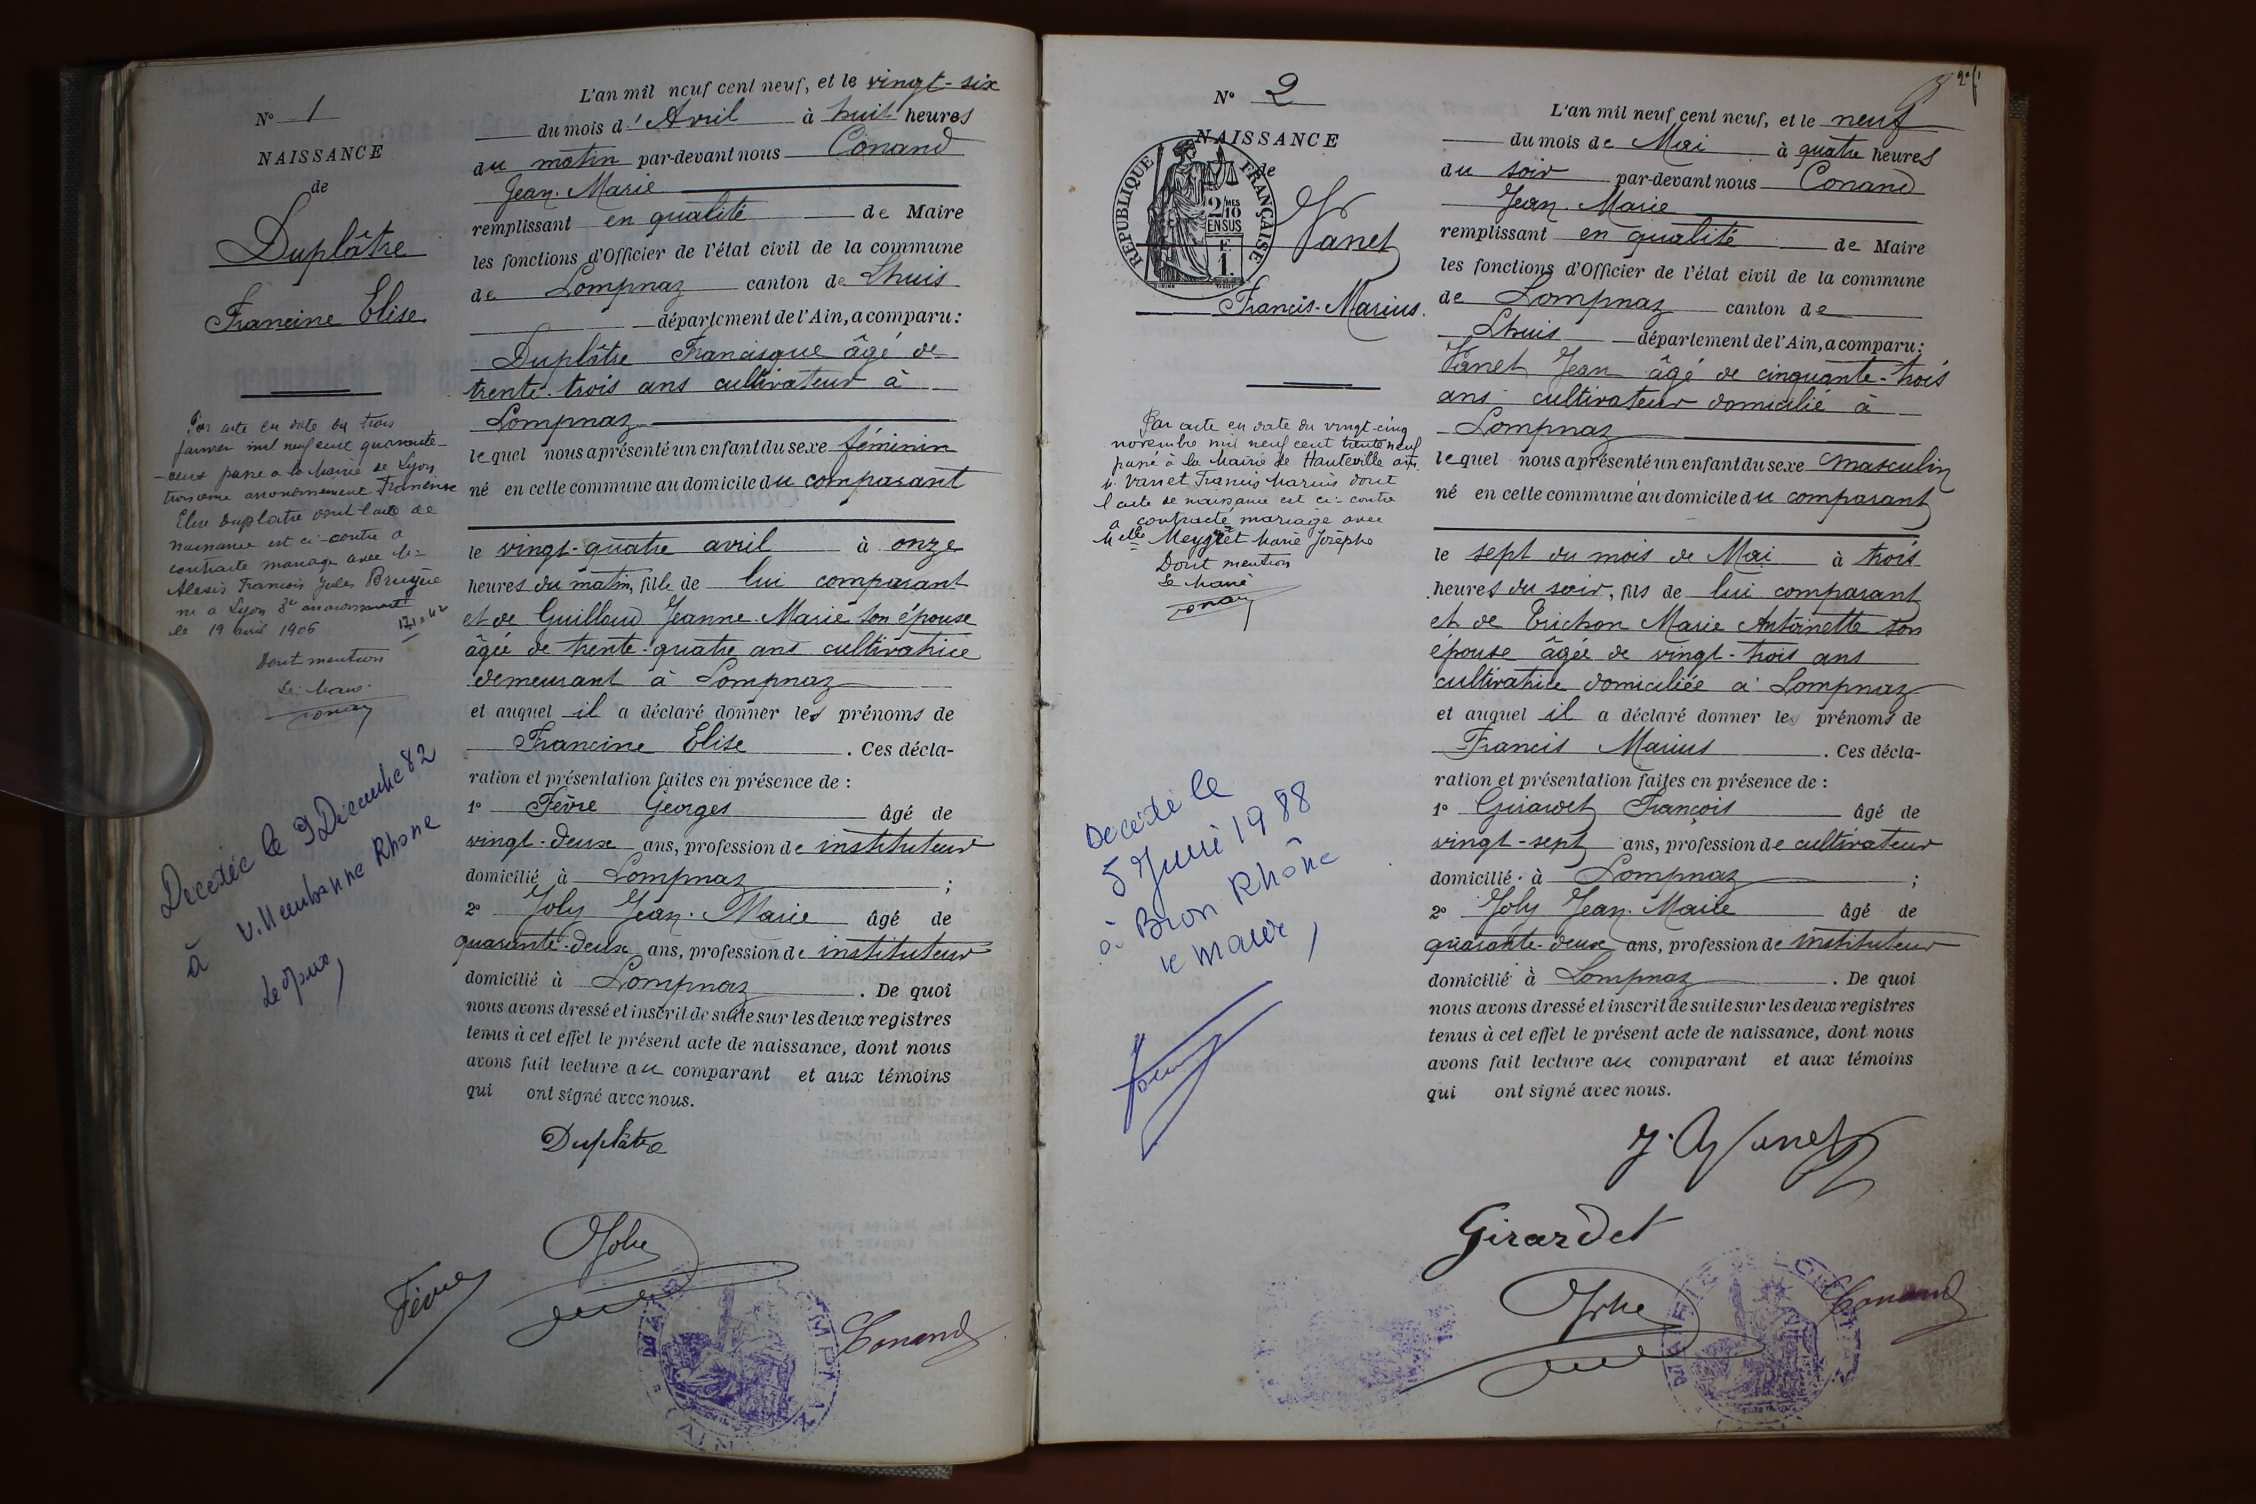 N° 1
NAISSANCE
de
Duplâtre
Francine Elise
Par acte en date du trois
janvier mil neuf cent quarante-
-deux passé à la Mairie de Lyon
troisième arrondissement Francine
Elise Duplatre dont l'acte de
naissance est ci-contre a
contracté mariage avec Mr
Alexis Francois Jules Bruyère
né à Lyon 3e arrondissement
le 19 avril 1906
Dont mention
Le Maire
Decedée le 9 Décembre 82
à Villeurbanne Rhone
L'an mil neuf cent neuf, et le vingt-six
du mois d'Avril à huit heures
du matin par-devant nous Conand
Jean-Marie
remplissant en qualité de Maire
les fonctions d'Officier de l'état civil de la commune
de Lompnaz canton de Lhuis
département de l'Ain, a comparu:
Duplâtre Francisque âgé de
trente-trois ans cultivateur à
Lompnaz
lequel nous a présenté un enfant du sexe féminin
né en cette commune au domicile du comparant
le vingt-quatre avril à onze
heures du matin, fille de lui comparant
et de Guilloud Jeanne-Marie son épouse
âgée de trente-quatre ans cultivatrice
demeurant à Lompnaz
et auquel il a déclaré donner les prénoms de
Francine Elise. Ces décla-
ration et présentation faites en présence de :
1° Fèvre Georges âgé de
vingt-deux ans, profession de instituteur
domicilié à Lompnaz ;
2° Joly Jean-Marie âgé de
quarante-deux ans, profession de instituteur
domicilié à Lompnaz. De quoi
nous avons dressé et inscrit de suite sur les deux registres
tenus à cet effet le présent acte de naissance, dont nous
avons fait lecture au comparant et aux témoins
qui ont signé avec nous.
Duplâtre
Joly
Fèvre
Conand
N° 2
NAISSANCE
de
RÉPUBLIQUE FRANÇAISE
2/10MES
EN SUS
F
1.
Vanet
Francis-Marius.
Par acte en date du vingt-cinq
novembre mil neuf cent trente neuf
passé à la Mairie de Hauteville
M. Vanet Francis Marius dont
l'acte de naissance est ci-contre
a contracté mariage avec
Melle Meygret Marie Josèphe
Dont mention
Le Maire
Decédé le
5 Juin 1988
à Bron Rhône
le maire,
L'an mil neuf cent neuf, et le neuf
du mois de Mai à quatre heures
du soir par-devant nous Conand
Jean-Marie
remplissant en qualité de Maire
les fonctions d'Officier de l'état civil de la commune
de Lompnaz canton de
Lhuis département de l'Ain, a comparu:
Vanet Jean âgé de cinquante-trois
ans cultivateur domicilié à
Lompnaz
lequel nous a présenté un enfant du sexe masculin
né en cette commune au domicile du comparant
le sept du mois de Mai à trois
heures du soir, fils de lui comparant
et de Trichon Marie Antoinette son
épouse âgée de vingt-trois ans
cultivatrice domiciliée à Lompnaz
et auquel il a déclaré donner les prénoms de
Francis Marius. Ces décla-
ration et présentation faites en présence de :
1° Girardet François âgé de
vingt-sept ans, profession de cultivateur
domicilié à Lompnaz ;
2° Joly Jean-Marie âgé de
quarante-deux ans, profession de instituteur
domicilié à Lompnaz. De quoi
nous avons dressé et inscrit de suite sur les deux registres
tenus à cet effet le présent acte de naissance, dont nous
avons fait lecture au comparant et aux témoins
qui ont signé avec nous.
Vanet
Girardet
Joly
Conand